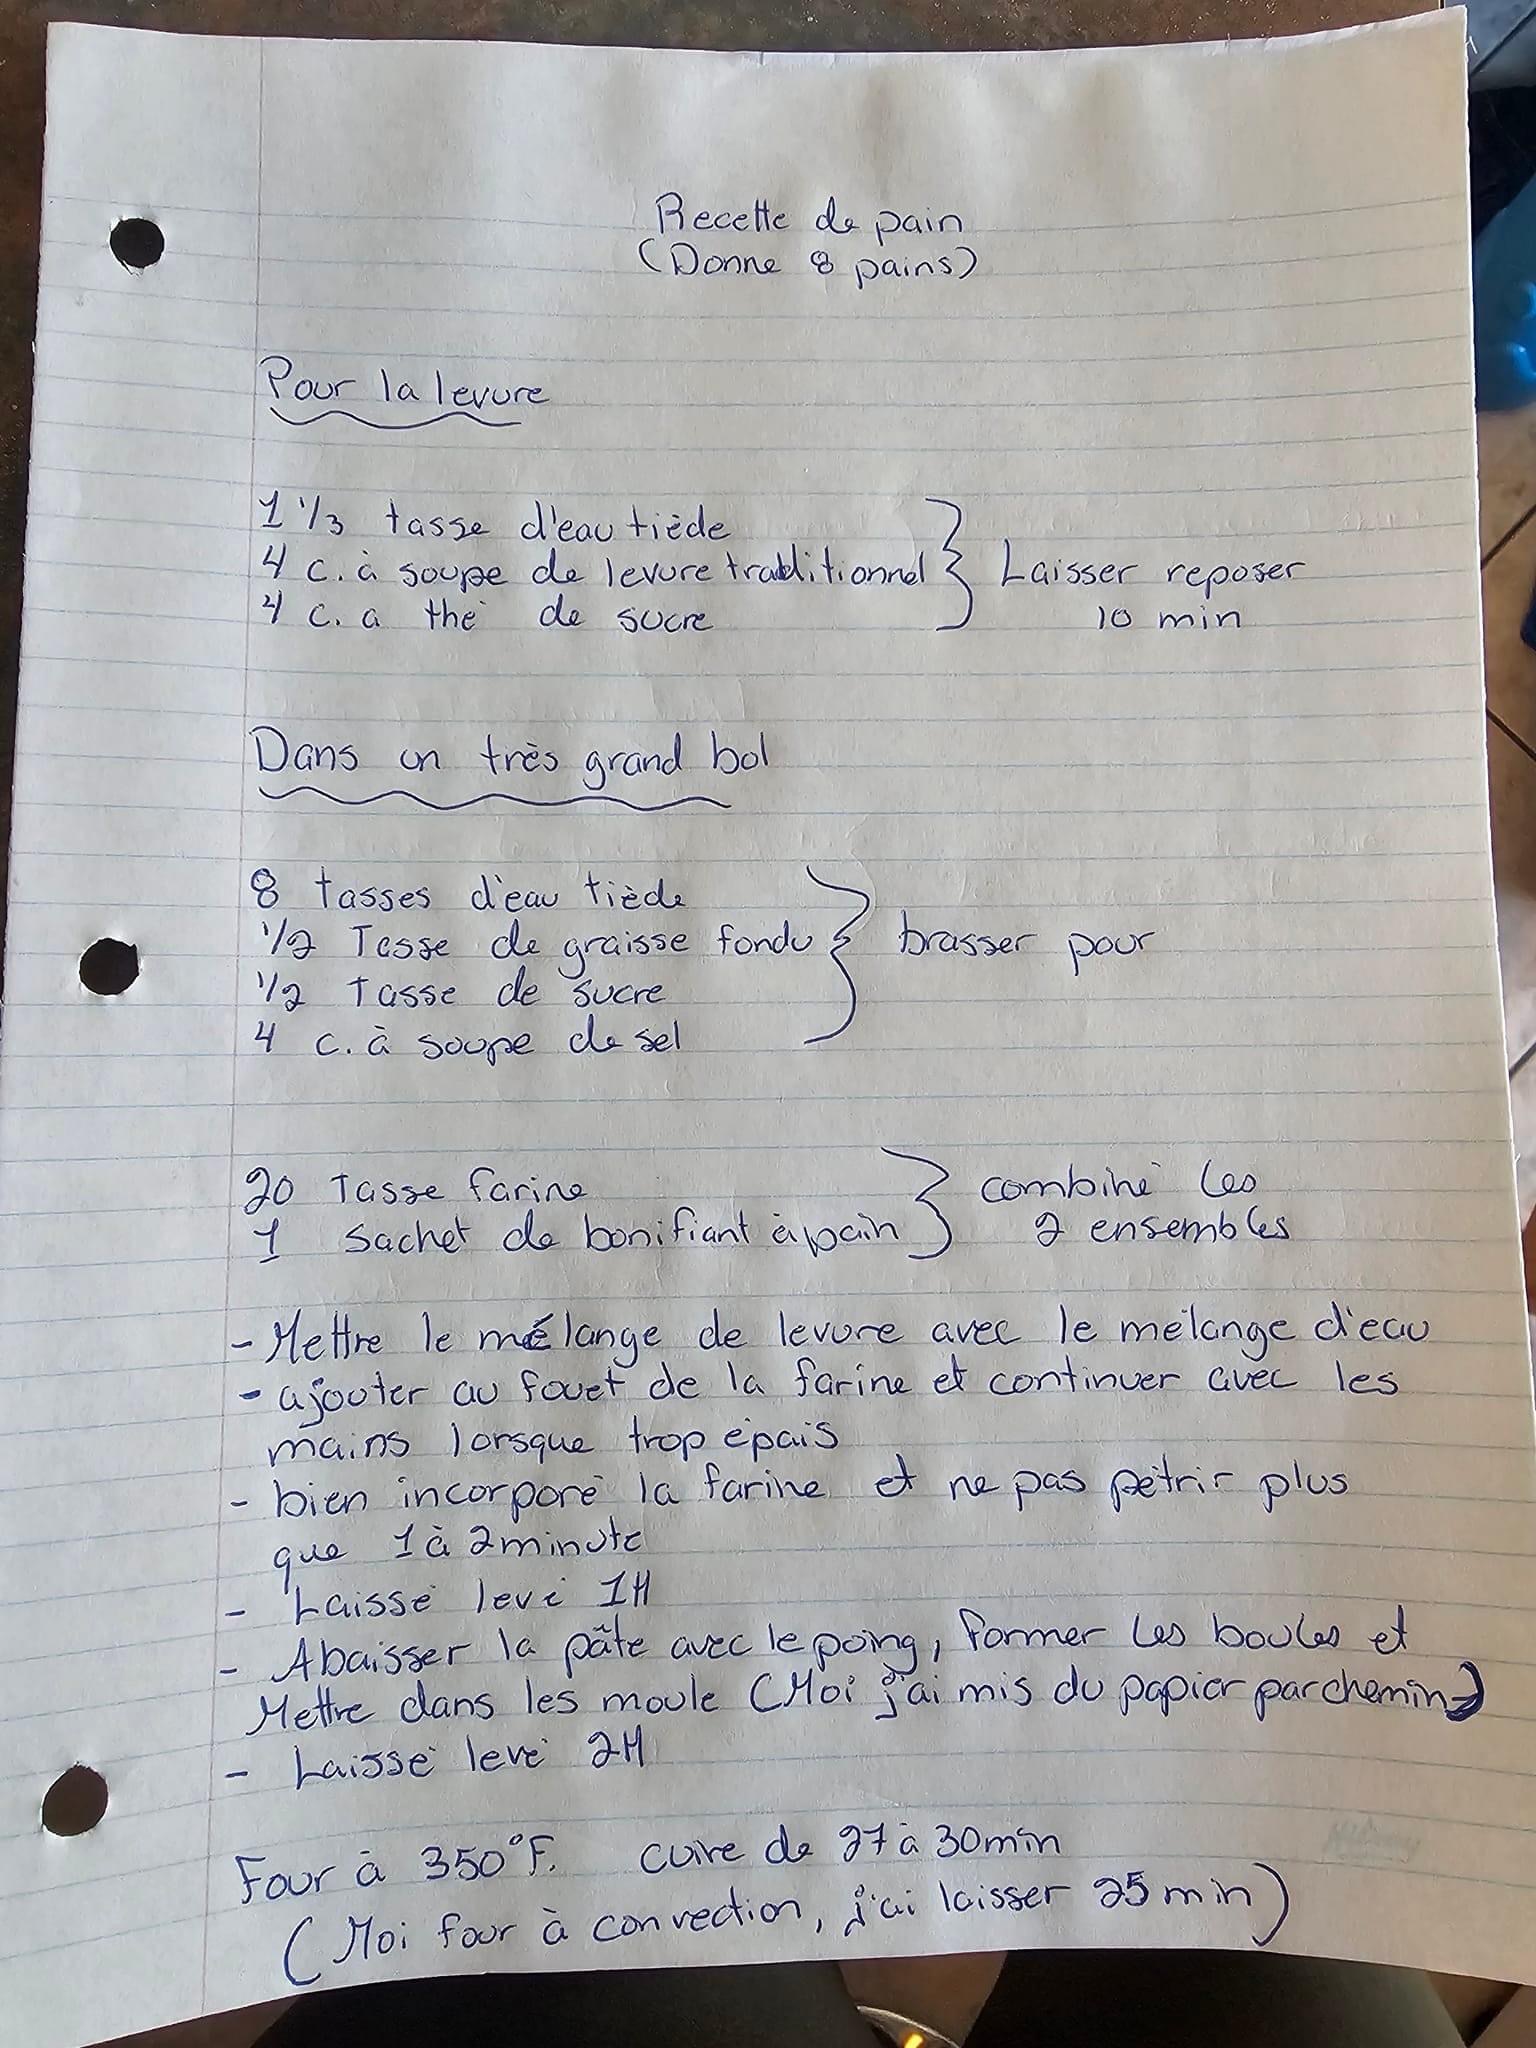 Recette de pain
(Donne 8 pains)
Pour la levure
1 1/3 tasse d'eau tiède
4 c. à soupe de levure traditionnel
4 c. a thé de sucre
Laisser reposer
10 min
Dans un très grand bol
8 tasses d'eau tiède
1/2 Tasse de graisse fondu
1/2 Tasse de sucre
4 c. à soupe de sel
brasser pour
20 Tasse farine
1 sachet de bonifiant à pain
combiné les
2 ensembles
- Mettre le mélange de levure avec le mélange d'eau
- ajouter au fouet de la farine et continuer avec les
mains lorsque trop épais
- bien incorporé la farine et ne pas pétrir plus
que 1 à 2 minute
- Laissé levé 1H
- Abaisser la pâte avec le poing, former les boules et
Mettre dans les moule (Moi j'ai mis du papier parchemin)
- Laissé levé 2H
Four à 350°F. cuire de 27 à 30 min
(Moi four à convection, j'ai laisser 25 min)